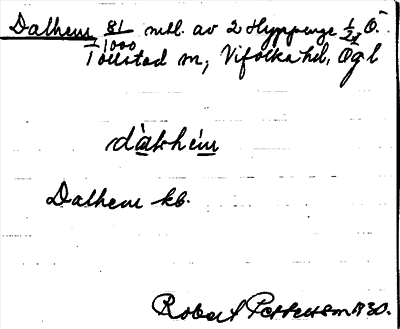 Dalhem 81/1000 mtl. av 2 Hyppinge 1/2 Ö.
Tollstad sn, Vifolka hd, Ögl
dàlhém
Dalhem kb.
Robert Pettersson 1930.